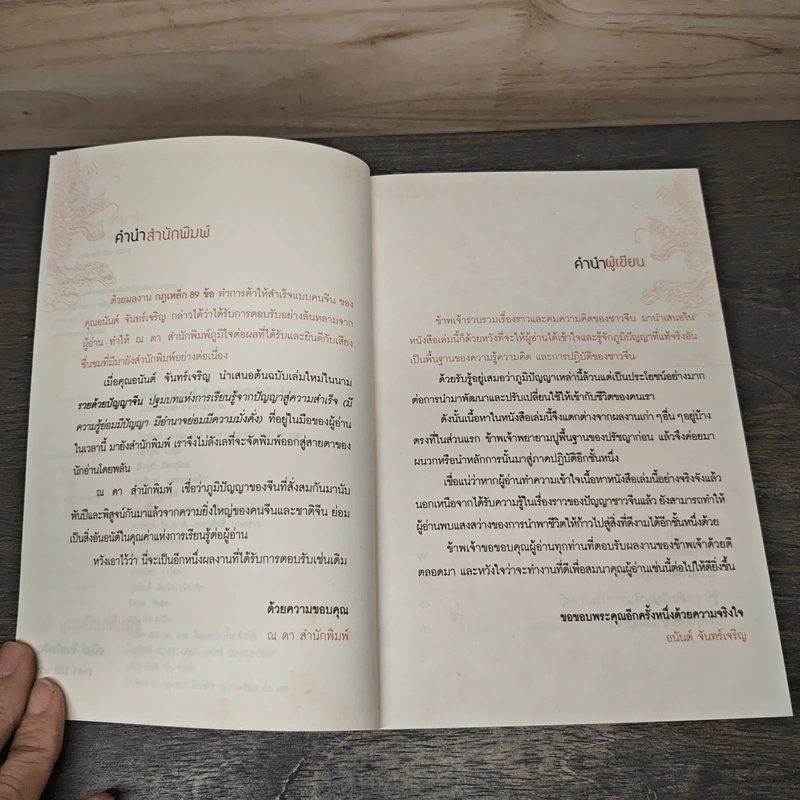 คำนำสำนักพิมพ์
ด้วยผลงาน กฎเหล็ก 89 ข้อ ทำการค้าให้สำเร็จแบบคนจีน ของ
คุณอนันต์ จันทร์เจริญ กล่าวได้ว่าได้รับการตอบรับอย่างล้นหลามจาก
ผู้อ่าน ทำให้ ณ ดา สำนักพิมพ์ภูมิใจต่อผลที่ได้รับและยินดีกับเสียง
ชื่นชมที่มีมายังสำนักพิมพ์อย่างต่อเนื่อง
เมื่อคุณอนันต์ จันทร์เจริญ นำเสนอต้นฉบับเล่มใหม่ในนาม
รวยด้วยปัญญาจีน ปฐมบทแห่งการเรียนรู้จากปัญญาสู่ความสำเร็จ (มี
ความรู้ย่อมมีปัญญา มีอำนาจย่อมมีความมั่งคั่ง) ที่อยู่ในมือของผู้อ่าน
ในเวลานี้ มายังสำนักพิมพ์ เราจึงไม่ลังเลที่จะจัดพิมพ์ออกสู่สายตาของ
นักอ่านโดยพลัน
ณ ดา สำนักพิมพ์ เชื่อว่าภูมิปัญญาของจีนที่สั่งสมกันมานับ
พันปีและพิสูจน์กันมาแล้วจากความยิ่งใหญ่ของคนจีนและชาติจีน ย่อม
เป็นสิ่งอันอนันต์ในคุณค่าแห่งการเรียนรู้ต่อผู้อ่าน
หวังเอาไว้ว่า นี่จะเป็นอีกหนึ่งผลงานที่ได้รับการตอบรับเช่นเดิม
ด้วยความขอบคุณ
ณ ดา สำนักพิมพ์
คำนำผู้เขียน
ข้าพเจ้ารวบรวมเรื่องราวและคมความคิดของชาวจีน มานำเสนอใน
หนังสือเล่มนี้ก็ด้วยหวังที่จะให้ผู้อ่านได้เข้าใจและรู้จักภูมิปัญญาที่แท้จริงอัน
เป็นพื้นฐานของความรู้ความคิด และการปฏิบัติของชาวจีน
ด้วยรับรู้อยู่เสมอว่าภูมิปัญญาเหล่านี้ล้วนแต่เป็นประโยชน์อย่างมาก
ต่อการนำมาพัฒนาและปรับเปลี่ยนใช้ให้เข้ากับชีวิตของคนเรา
ดังนั้นเนื้อหาในหนังสือเล่มนี้จึงแตกต่างจากผลงานเก่า ๆอื่น ๆอยู่บ้าง
ตรงที่ในส่วนแรก ข้าพเจ้าพยายามปูพื้นฐานของปรัชญาก่อน แล้วจึงค่อยมา
ผนวกหรือนำหลักการนั้นมาสู่ภาคปฏิบัติอีกชั้นหนึ่ง
เชื่อแน่ว่าหากผู้อ่านทำความเข้าใจเนื้อหาหนังสือเล่มนี้อย่างจริงจังแล้ว
นอกเหนือจากได้รับความรู้ในเรื่องราวของปัญญาชาวจีนแล้ว ยังสามารถทำให้
ผู้อ่านพบแสงสว่างของการนำพาชีวิตให้ก้าวไปสู่สิ่งที่ดีงามได้อีกชั้นหนึ่งด้วย
ข้าพเจ้าขอขอบคุณผู้อ่านทุกท่านที่ตอบรับผลงานของข้าพเจ้าด้วยดี
ตลอดมา และหวังใจว่าจะทำงานที่ดีเพื่อสมนาคุณผู้อ่านเช่นนี้ต่อไปให้ดียิ่งขึ้น
ขอขอบพระคุณอีกครั้งหนึ่งด้วยความจริงใจ
อนันต์ จันทร์เจริญ